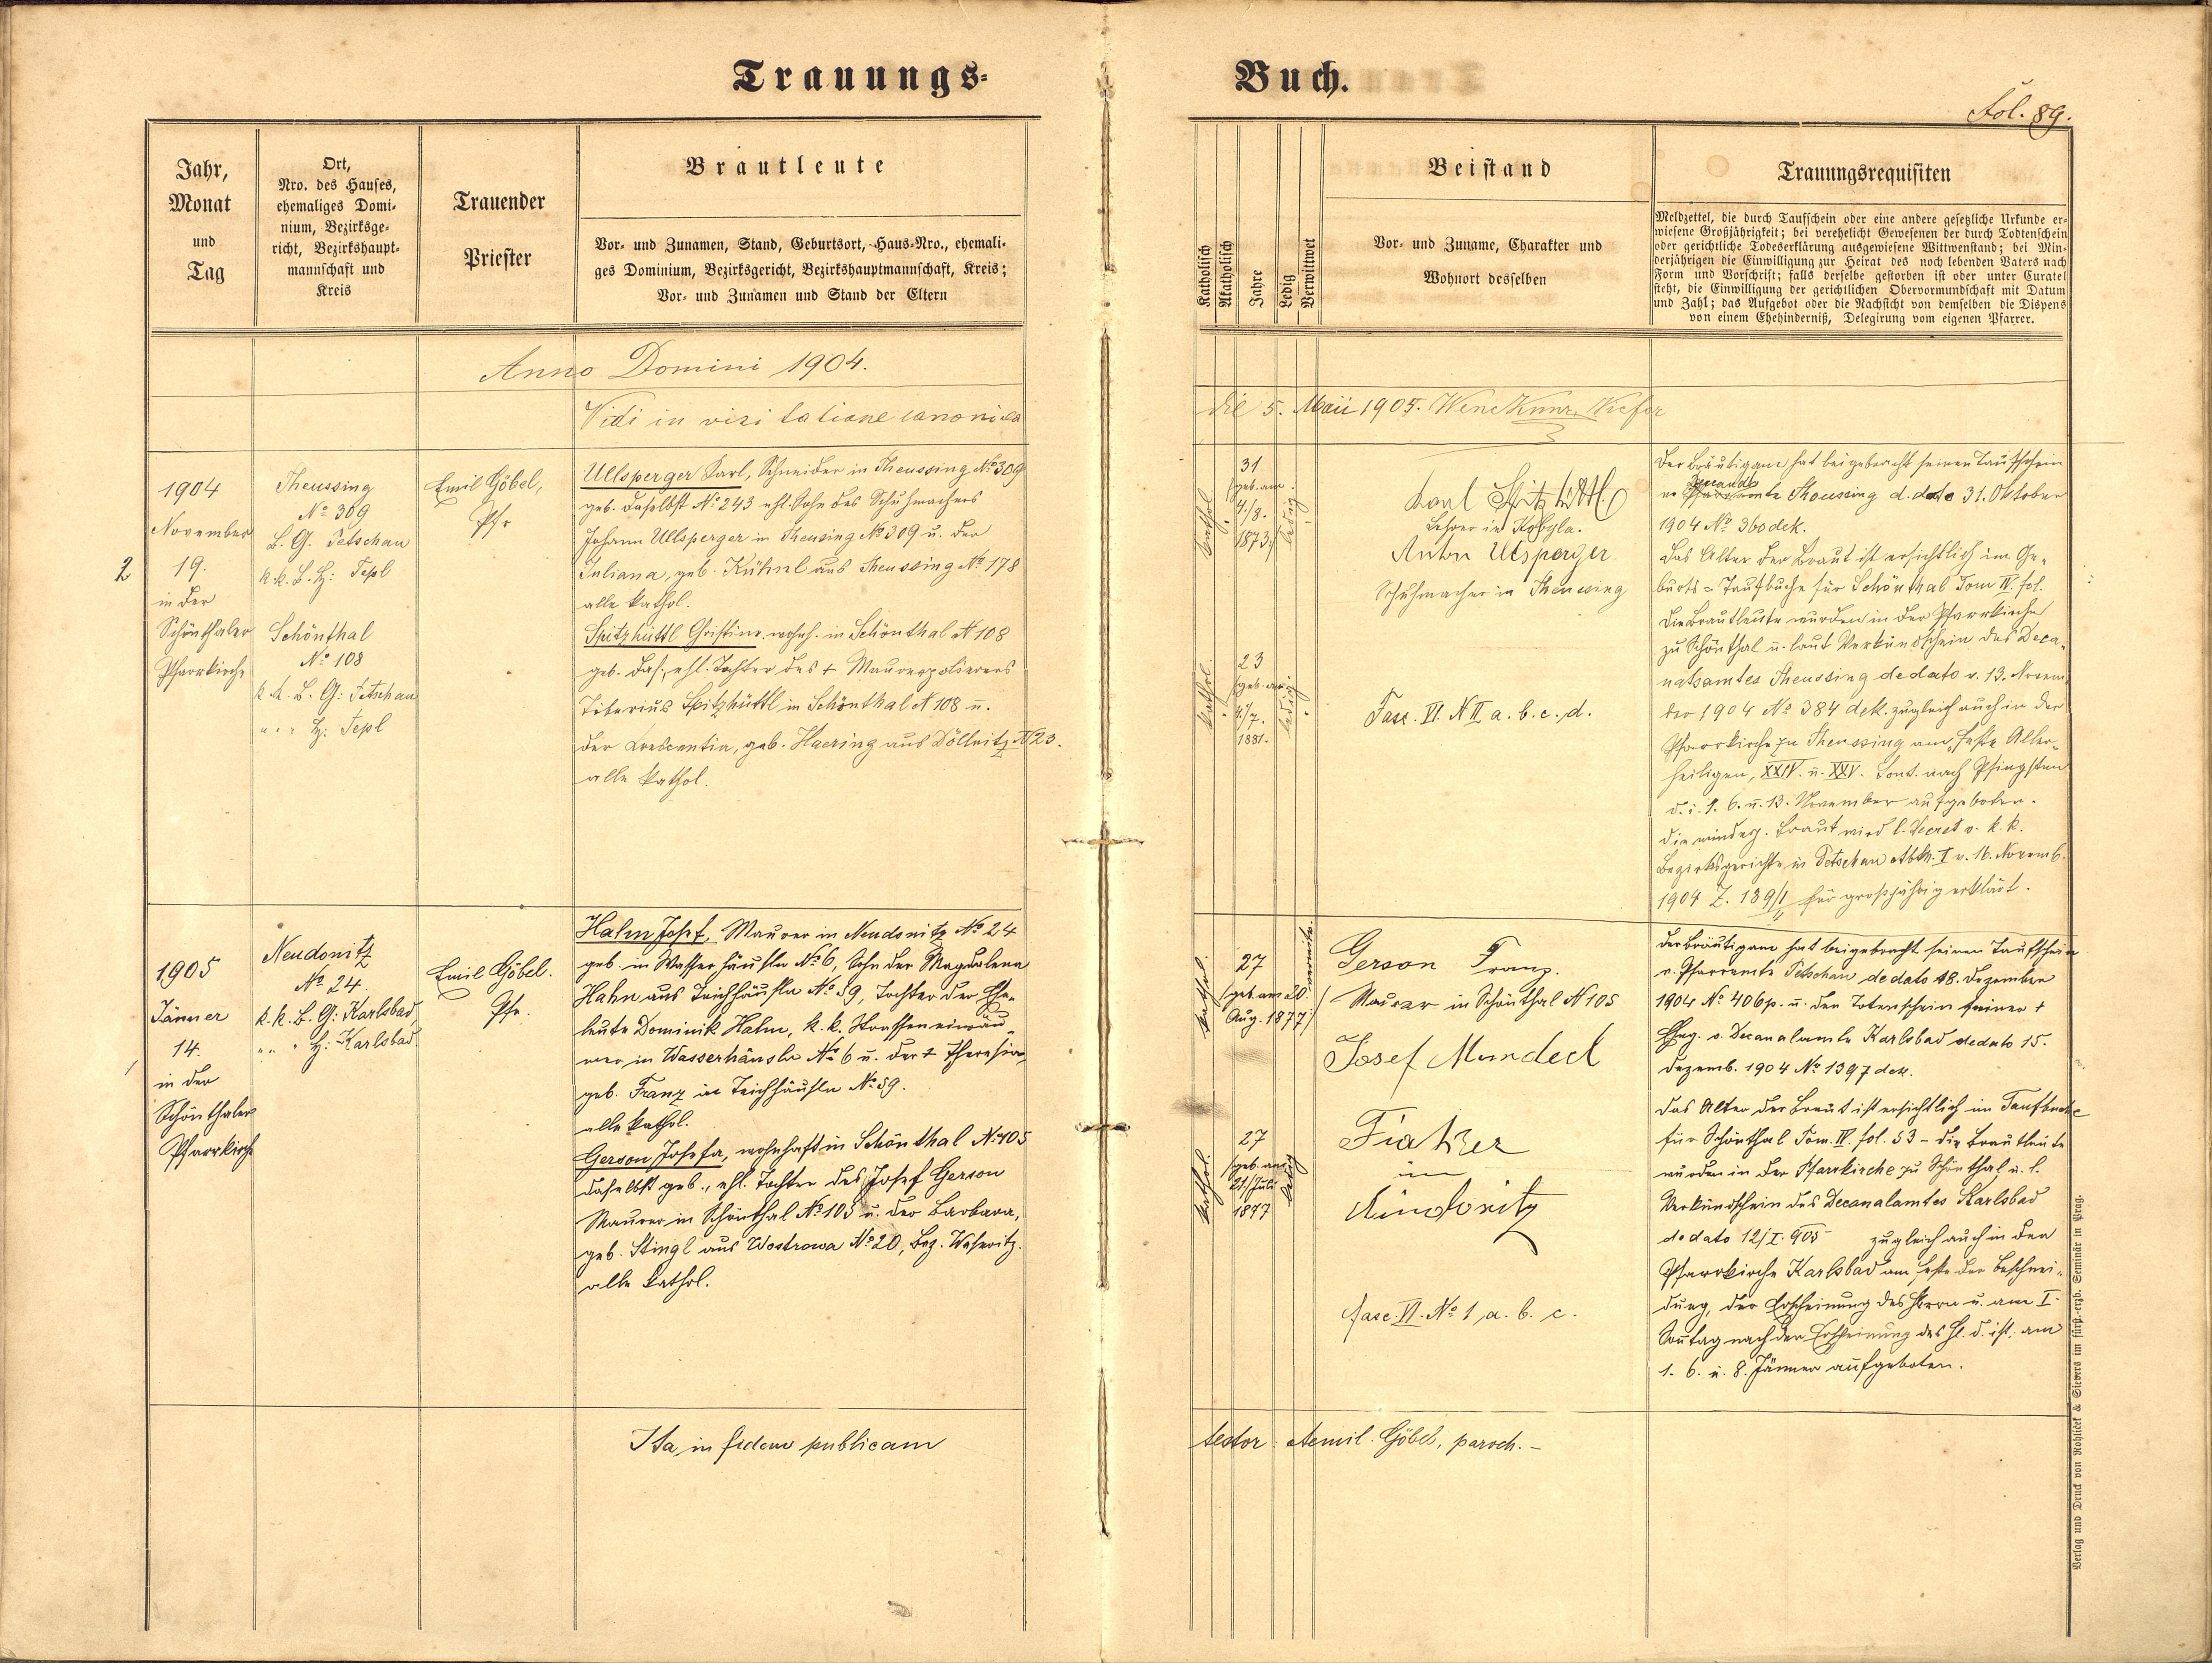 Trauungs-
Buch.
Fol. 89.
Jahr,
Monat
und
Tag
Ort,
Nro. des Hauses,
ehemaliges Domi-
nium, Bezirksge-
richt, Bezirkshaupt-
mannschaft und
Kreis
Trauender
Priester
Brautleute
Vor- und Zunamen, Stand, Geburtsort, Haus-Nro., ehemali-
ges Dominium, Bezirksgericht, Bezirkshauptmannschaft, Kreis;
Vor- und Zunamen und Stand der Eltern
Katholisch
Akatholisch
Jahre
Ledig
Verwittwet
Beistand
Vor- und Zuname, Charakter und
Wohnort desselben
Trauungsrequisiten
Meldzettel, die durch Taufschein oder eine andere gesetzliche Urkunde er-
wiesene Großjährigkeit; bei verehelicht Gewesenen der durch Todtenschein
oder gerichtliche Todeserklärung ausgewiesene Wittwenstand; bei Min-
derjährigen die Einwilligung zur Heirat des noch lebenden Vaters nach
Form und Vorschrift; falls derselbe gestorben ist oder unter Curatel
steht, die Einwilligung der gerichtlichen Obervormundschaft mit Datum
und Zahl; das Aufgebot oder die Nachsicht von demselben die Dispens
von einem Ehehinderniß, Delegirung vom eigenen Pfarrer.
Anno Domini 1904.
Vidi in visitatione canonica
die 5. Maii 1905.
2
1904
November
19.
in der
Schönthaler
Pfarrkirche
Theussing
No 309
B. G. Petschau
k.k. B. H: Tepl
Schönthal
No 108
k.k. B. G: Petschau
" " " H: Tepl
Emil Göbel,
Pfr
Ullsperger Karl, Schneider in Theussing No 309
geb. daselbst No 243 ehl. Sohn des Schuhmachers
Johann Ullsperger in Theusing No 309 u. der
Juliana, geb. Kühnl aus Theussing No 178
alle kathol.
Spitzhüttl Christine, wohnh. in Schönthal N 108
geb. das., ehl. Tochter des + Maurerpolierers
Tiberius Spitzhüttl in Schönthal N 108 u.
der Crescentia, geb. Haering aus Döllnitz N 23.
alle kathol.
kathol.
31
/geb. am
4./8.
1873/
ledig
kathol.
23
/geb. am
4/7.
1881.
ledig
Karl Spitzhüttl
Lehrer in Kobyla.
Anton Ullsperger
Schuhmacher in Theussing
Fasc. VI. N II a. b. c. d.
Der Bräutigam hat beigebracht seinen Taufschein
Theussing d. dato 31. Oktober
1904 No 360 dek.
Das Alter der Braut ist ersichtlich im Ge-
burts- Taufbuche für Schönthal Tom IV. fol.
Die Brautleute wurden in der Pfarrkirche
zu Schönthal u. laut Verkündschein des Deca-
natsamtes Theussing de dato v. 13. Novem
ber 1904 No 384 dek. zugleich auch in der
Pfarrkirche zu Theussing am Feste Aller-
heiligen, XXIV. u. XXV. Sont. nach Pfingsten
d. i. 1. 6. u. 13. November aufgeboten.
Die minderj. Braut wird l. Decret v. k. k.
Bezirksgerichte in Petschau Abth. I v. 16. Novemb.
1904 Z. für großjährig erklärt.
1
1905
Jänner
14.
in der
Schönthaler
Pfarrkirche
Neudonitz
No 24.
k.k. B. G: Karlsbad
" " " H: Karlsbad
Emil Göbel.
Pfr.
Hahn Josef, Maurer in Neudonitz No 24
geb. in Wasserhäusln No 6, Sohn der Magdalena
Hahn aus Teichhäusln No 59, Tochter der Ehe-
leute Dominik Hahn, k.k. Strasseneinräu-
mer in Wasserhäusln No 6 u. der + Theresia
geb. Franz in Teichhäusln No 59.
alle kathol.
Gerson Josefa, wohnhaft in Schönthal No 105
daselbst geb., ehl. Tochter des Josef Gerson
Maurer in Schönthal No 105 u. der Barbara,
geb. Stingl aus Wostrowa No 20, Bez. Weseritz.
alle kathol.
kathol.
27
/geb. am 20.
Aug. 1877/
kathol.
27
/geb. am
21/Juli
1877
ledig
Gerson Franz.
Maurer in Schönthal N 105
Josef Mundeck
Fiaker
in
Neudonitz
fasc. VI. No 1 a. b. c.
Der Bräutigam hat beigebracht seinen Taufschein
v. Pfarramte Petschau de dato 18. Dezember
1904 No 406 p. u. den Totenschein seiner +
Eheg. v. Decanalamte Karlsbad de dato 15.
Dezemb. 1904 No 1397 dek.
Das Alter der Braut ist ersichtlich im Taufbuche
für Schönthal Tom. IV. fol. 53 - die Brautleute
wurden in der Pfarrkirche zu Schönthal u. l.
Verkündschein des Decanalamtes Karlsbad
de dato 12/I. 905 zugleich auch in der
Pfarrkirche Karlsbad am Feste der Beschnei-
dung, der Erscheinung des Herrn u. am I.
Sontag nach der Erscheinung des H. d. ist. am
1. 6. u. 8. Jänner aufgeboten.
Ita in fidem publicam
testor: Aemil. Göbel, paroch. -
Verlag und Druck von Rohliček & Sievers im fürst.-erzb. Seminär in Prag.